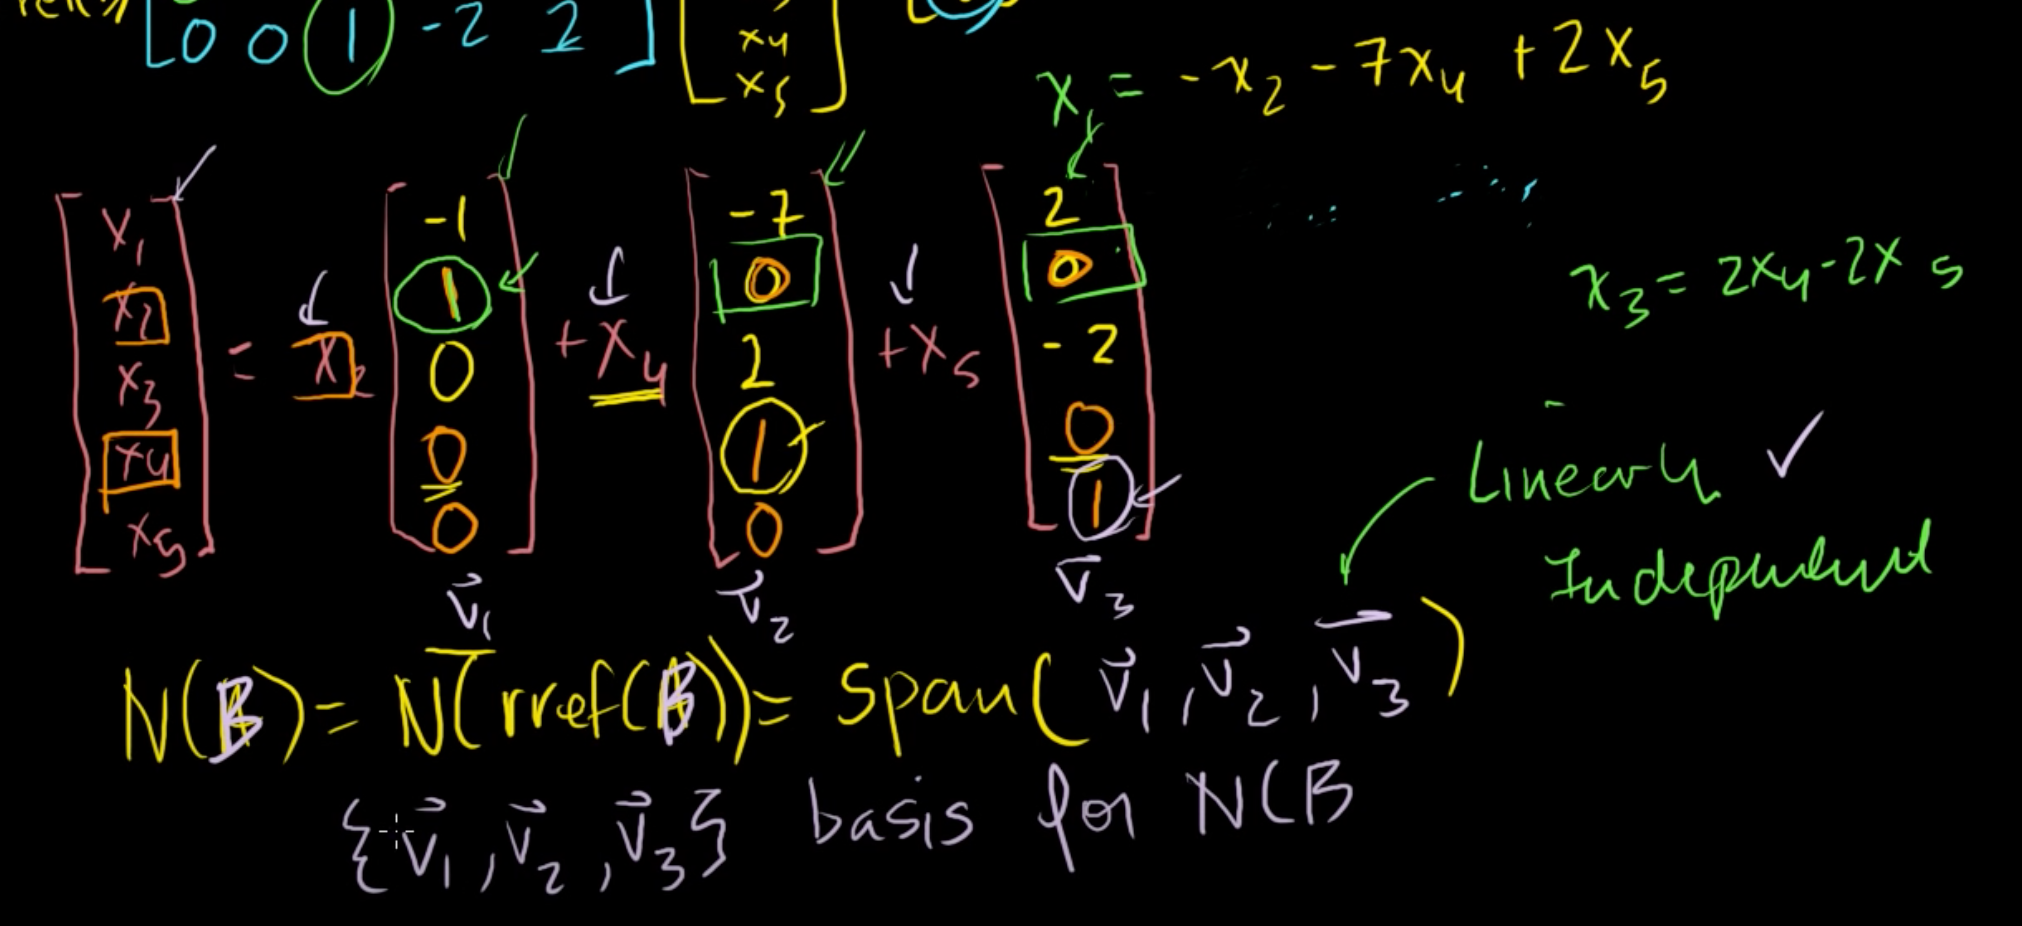 [0 0 1 -2 2] [x₄
x₅]
x₁ = -x₂ - 7x₄ + 2x₅
[x₁ x₂ x₃ x₄ x₅] = x₂ [-1 1 0 0 0] + x₄ [-7 0 2 1 0] + x₅ [2 0 -2 0 1]
x₃ = 2x₄ - 2x₅
Linearly ✓
Independent
v⃗₁ v⃗₂ v⃗₃
N(B) = N(rref(B)) = span(v⃗₁, v⃗₂, v⃗₃)
{v⃗₁, v⃗₂, v⃗₃} basis for N(B